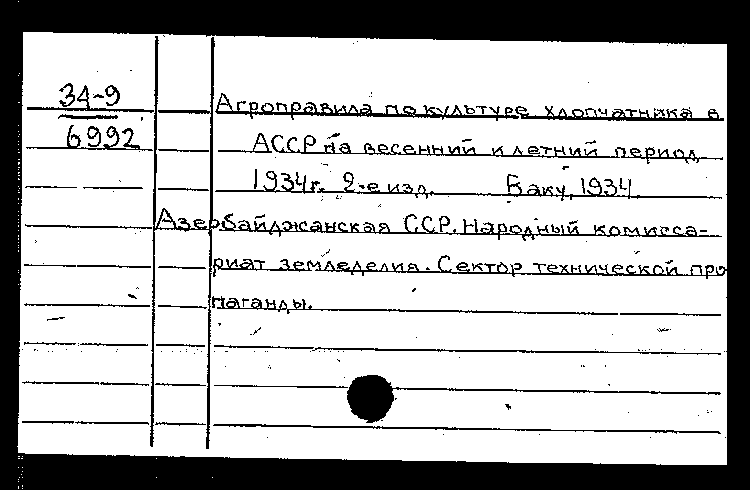 34-9
6992
Агроправила по культуре хлопчатника в
АССР на весенний и летний период
1934г. 2-е изд. Баку, 1934.
Азербайджанская ССР. Народный комисса-
риат земледелия. Сектор технической про
паганды.